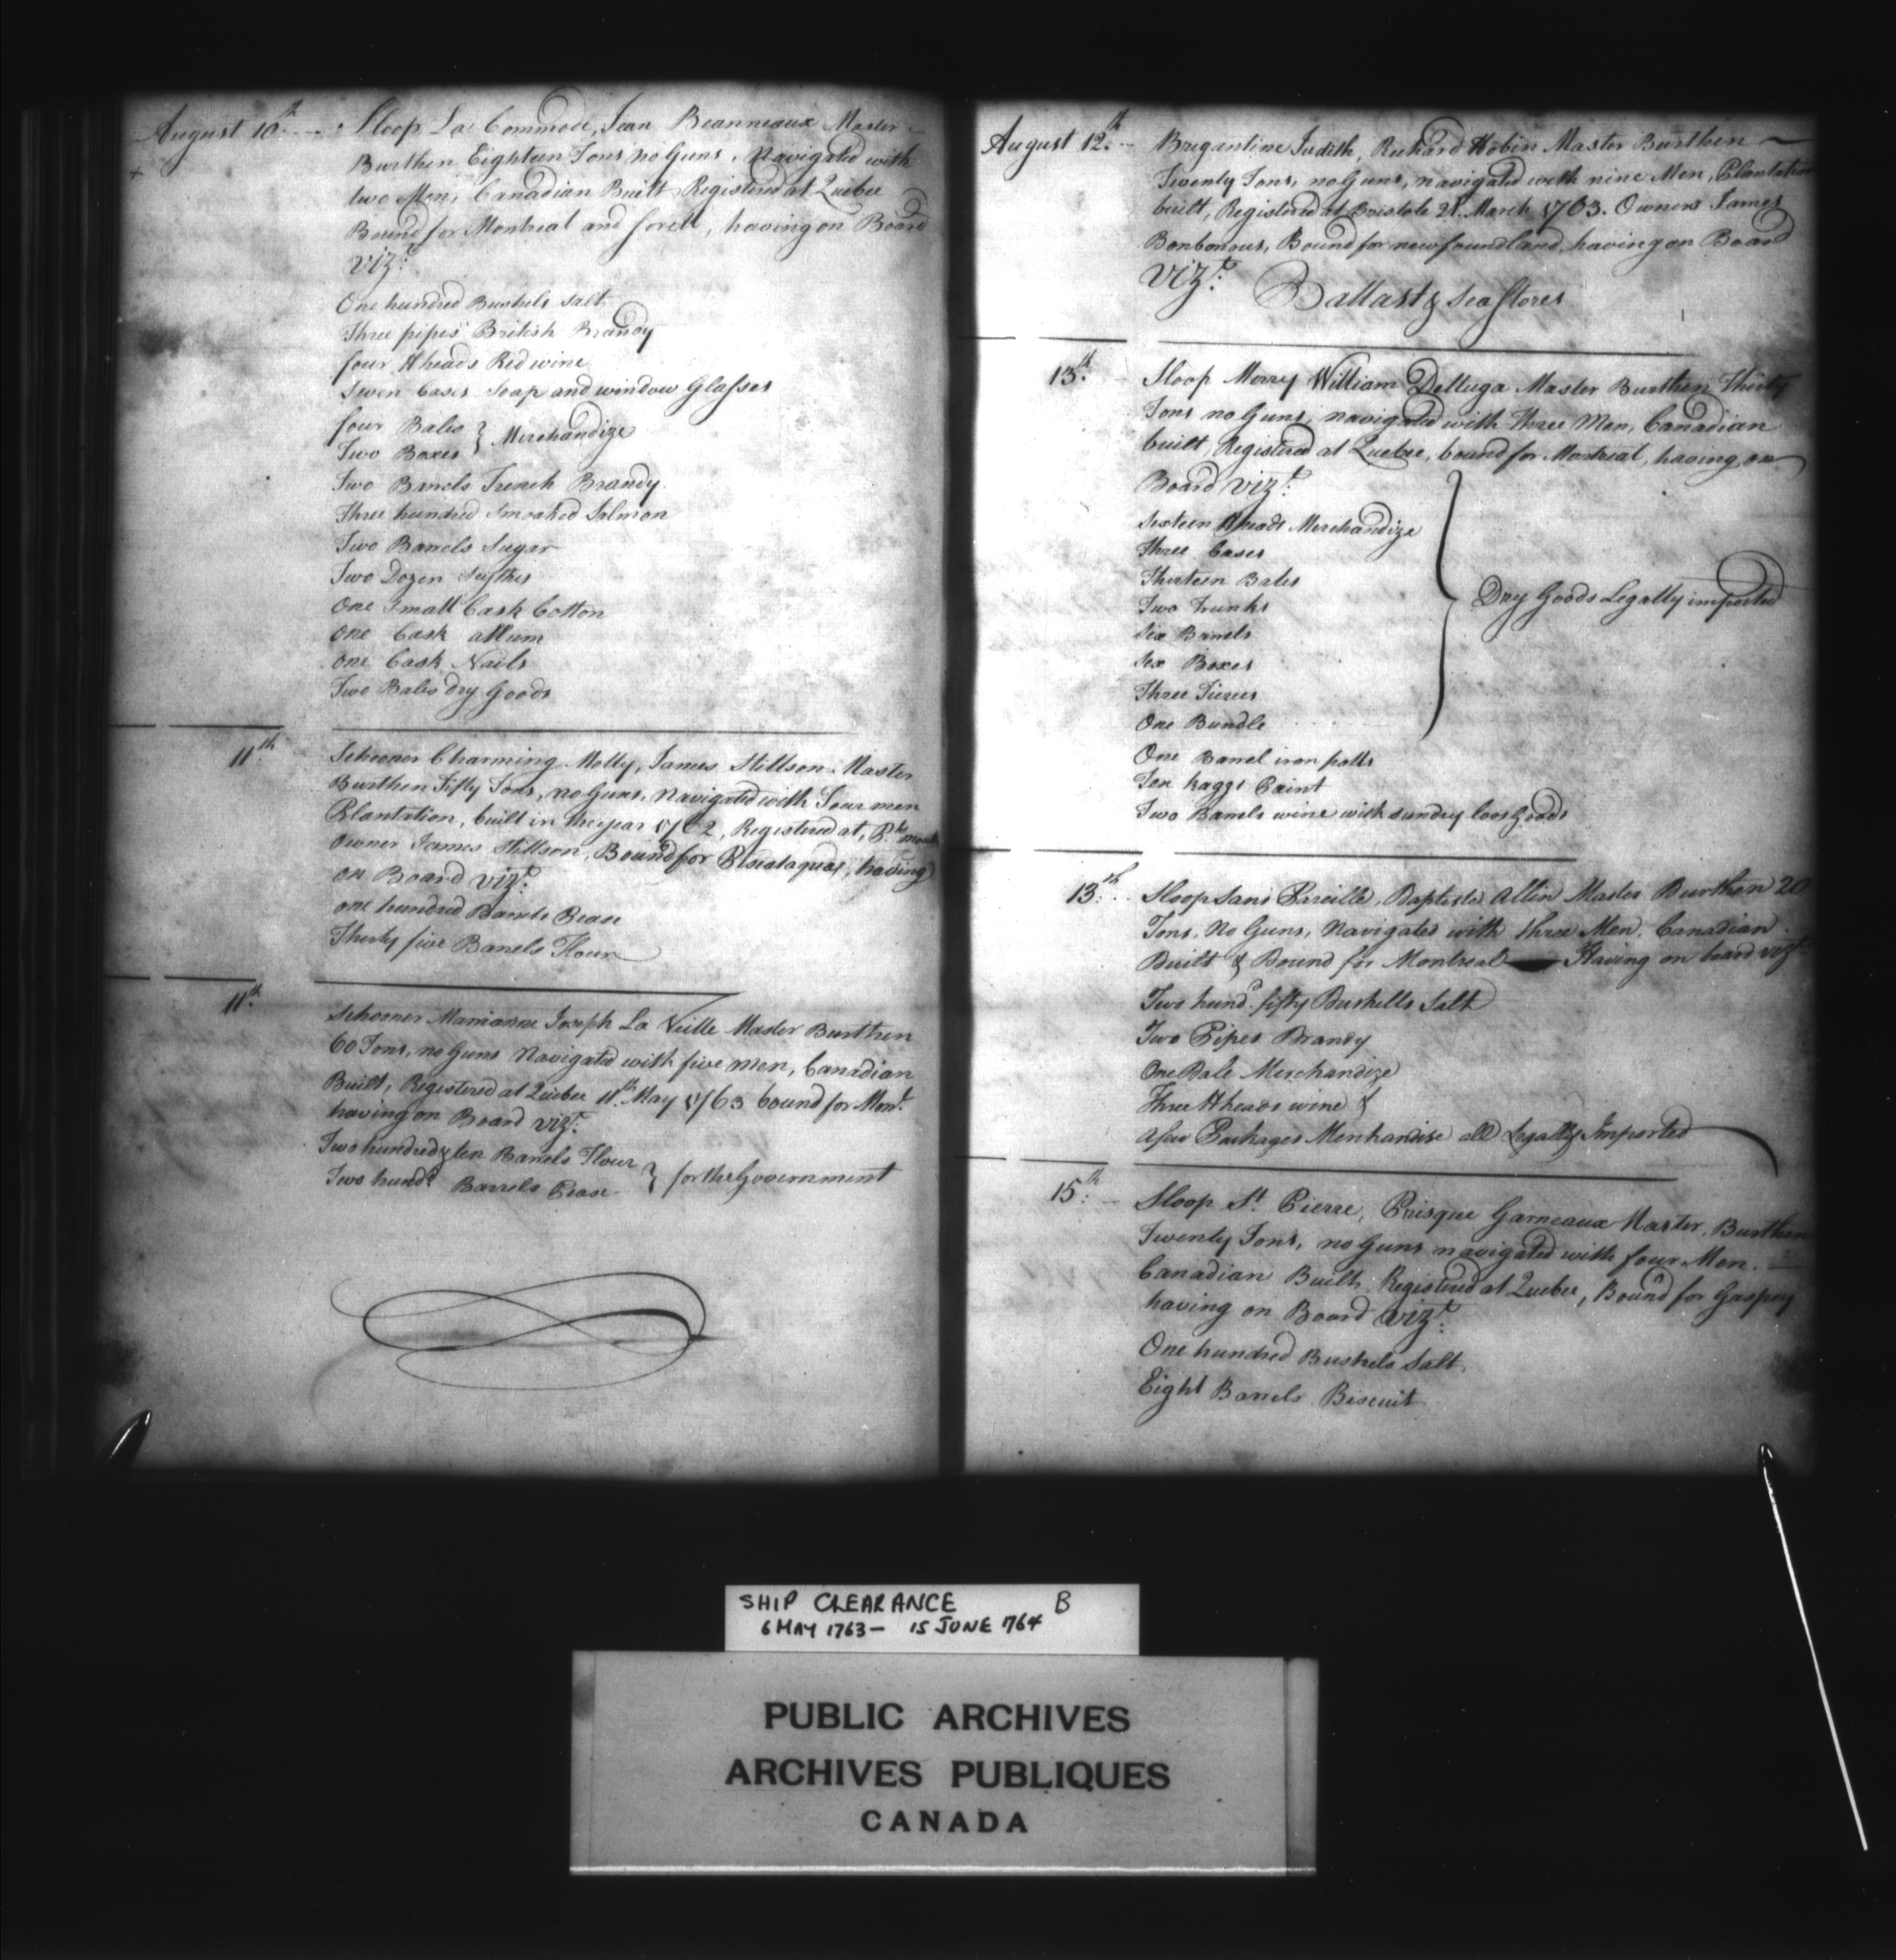 August 10.th Sloop La Commode, Jean Beanneaux Master
Burthen Eighteen Tons no Guns, Navigated with
two Men, Canadian Built Registered at Quebec
Bound for Montreal and Sorell, having on Board
vizt.
One hundred Bushels Salt
Three pipes British Brandy
four Hheads Red wine
Seven Cases Soap and window Glasses
four Bales } Merchandize
Two Boxes
Two Barrels French Brandy
Three hundred Smoaked Salmon
Two Barrels Sugar
Two Dozen Sythes
One Small Cask Cotton
One Cask allum
one Cask Nails
Two Bales dry Goods
11th Schooner Charming Molly, James Stillson Master
Burthen Fifty Tons, no Guns, Navigated with Four men
Plantation, built in the year 1762, Registered at,
owner James Stillson, Bound for Piscataquay, having
on Board vizt.
one hundred Barrels Pease
Thirty five Barrels Flour
11th. Schooner Marianne Joseph La Veille Master Burthen
60 Tons, no Guns Navigated with five men, Canadian
Built, Registered at Quebec 11th May 1763 bound for Mont.
having on Board vizt.
Two hundred & ten Barrels Flour } for the Government
Two hundd. Barrels Pease
August 12.th Bregantine Judith, Richard Hobin Master Burthen
Twenty Tons, no Guns, navigated with nine Men, Plantation
built, Registered at Bristole 21. March 1763. Owners James
Bonbonous, Bound for newfoundland, having on Board
vizt. Ballast & Sea Stores
13.th Sloop Morry William Delluga Master Burthen Thirty
Tons no Guns, navigated with Three Men, Canadian
built, Registered at Quebec, bound for Montreal, having on
Board vizt.
Sixteen Hheads Merchandize
Three Cases
Thirteen Bales
Two Trunks } Dry Goods Legally imported
Six Barrels
Six Boxes
Three Tierces
One Bundle
One Barrel iron potts
Ten kaggs Paint
Two Barrels wine with sundry loos Goods
13.th Sloop Sans Pareille, Baptiste Allin Master Burthen 20
Tons, No Guns, Navigated with three Men, Canadian
Built & Bound for Montreal Having on board vizt
Two hund.d fifty Bushells Salt
Two Pipes Brandy
One Bale Merchandize
Three Hheads wine &
a few Packages Merchandise all Legally Imported
15.th Sloop St. Pierre, Prisque Garneaux Master, Burthen
Twenty Tons, no Guns navigated with four Men.
Canadian Built, Registered at Quebec, Bound for Gaspey
having on Board vizt.
One hundred Bushels Salt.
Eight Barrels Biscuit
SHIP CLEARANCE B
6 MAY 1763 – 15 JUNE 1764
PUBLIC ARCHIVES
ARCHIVES PUBLIQUES
CANADA